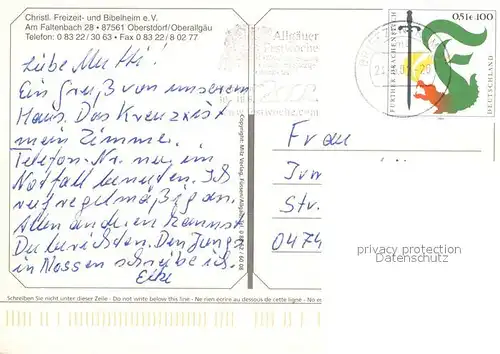 Christl. Freizeit- und Bibelheim e.V.
Am Faltenbach 28 • 87561 Oberstdorf/Oberallgäu
Telefon: 0 83 22 / 30 63 • Fax 0 83 22 / 8 02 77
Liebe Mutti!
Ein Gruß von unserem
Haus. Das Kreuz ist
mein Zimme.
Telefon-Nr. nur im
Notfall benutzen. Ich
ruf regelmäßig an.
Allen anderen kannst
Du berichten. Den Jungs
in Nossen schreibe ich.
Eike
Allgäuer
Festwoche
woche.com
Copyright: Mila Verlag, Füssen/Allgäu
0,51€ 100
FURTHER DRACHENSTICH
DEUTSCHLAND
Frau
Str.
0474
privacy protection
Datenschutz
Schreiben Sie nicht unter dieser Zeile - Do not write below this line - Ne rien ecrire au dessous de cette ligne - No escribi